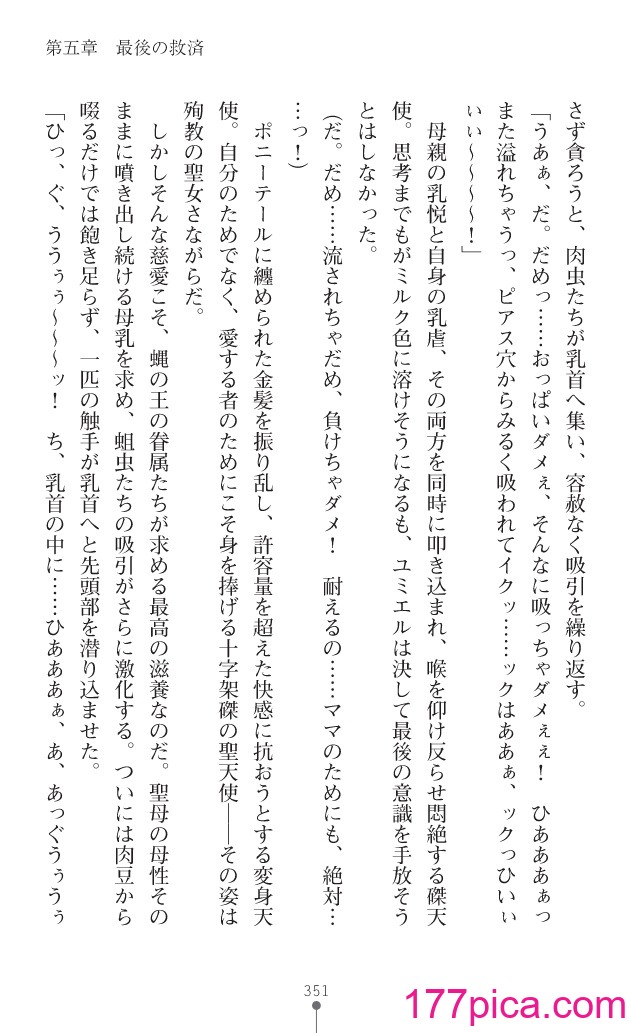 第五章　最後の救済
さず貪ろうと、肉虫たちが乳首へ集い、容赦なく吸引を繰り返す。
「うあぁ、だ。だめっ……おっぱいダメぇ、そんなに吸っちゃダメぇぇ！　ひあああぁっ
また溢れちゃうっ、ピアス穴からみるく吸われてイクッ……ックはああぁ、ックっひいぃ
ぃぃ～～～～！」
　母親の乳悦と自身の乳虐、その両方を同時に叩き込まれ、喉を仰け反らせ悶絶する磔天
使。思考までもがミルク色に溶けそうになるも、ユミエルは決して最後の意識を手放そう
とはしなかった。
（だ。だめ……流されちゃだめ、負けちゃダメ！　耐えるの……ママのためにも、絶対…
…っ！）
　ポニーテールに纏められた金髪を振り乱し、許容量を超えた快感に抗おうとする変身天
使。自分のためでなく、愛する者のためにこそ身を捧げる十字架磔の聖天使――その姿は
殉教の聖女さながらだ。
　しかしそんな慈愛こそ、蝿の王の眷属たちが求める最高の滋養なのだ。聖母の母性その
ままに噴き出し続ける母乳を求め、蛆虫たちの吸引がさらに激化する。ついには肉豆から
啜るだけでは飽き足らず、一匹の触手が乳首へと先頭部を潜り込ませた。
「ひっ、ぐ、ううぅぅ～～～ッ！　ち、乳首の中に……ひあああぁ、あ、あっぐうぅうぅ
351
177pica.com